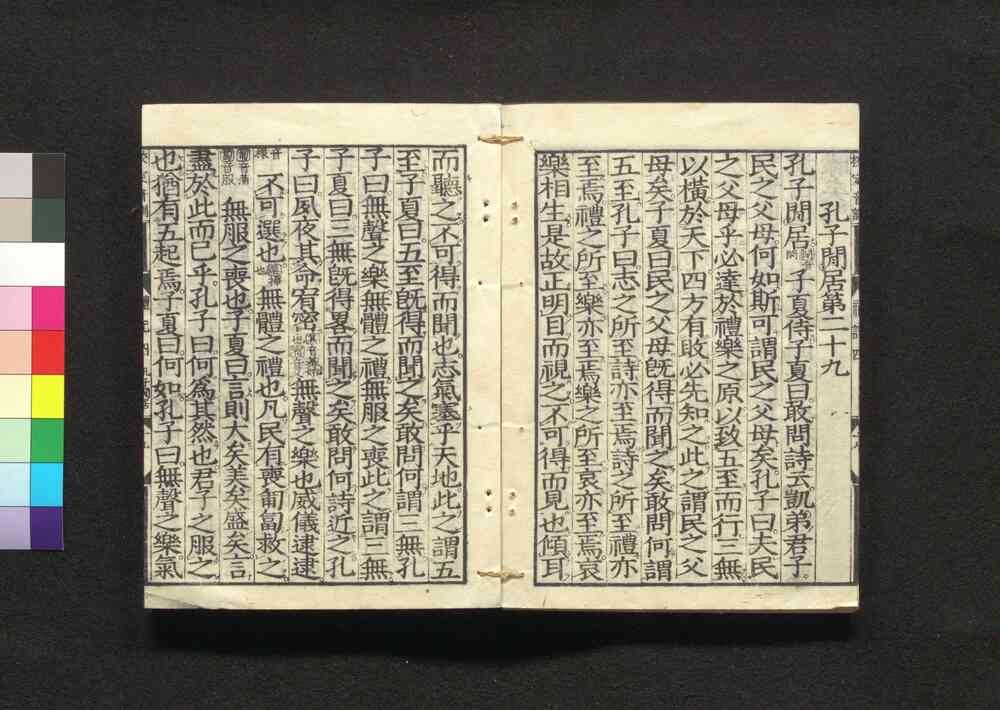 孔子閒居第二十九
孔子閒居子夏侍子夏曰敢問詩云凱弟君子
民之父母何如斯可謂民之父母矣孔子曰夫民
之父母乎必達於禮樂之原以致五至而行三無
以橫於天下四方有敗必先知之此之謂民之父
母矣子夏曰民之父母既得而聞之矣敢問何謂
五至孔子曰志之所至詩亦至焉詩之所至禮亦
至焉禮之所至樂亦至焉樂之所至哀亦至焉哀
樂相生是故正明目而視之不可得而見也傾耳
而聽之不可得而聞也志氣塞乎天地此之謂五
至子夏曰五至既得而聞之矣敢問何謂三無孔
子曰無聲之樂無體之禮無服之喪此之謂三無
子夏曰三無既得畧而聞之矣敢問何詩近之孔
子曰夙夜其命有密無聲之樂也威儀逮逮
不可選也無體之禮也凡民有喪匍匐救之
匍音蒲匐音服無服之喪也子夏曰言則大矣美矣盛矣言
盡於此而已乎孔子曰何為其然也君子之服之
也猶有五起焉子夏曰何如孔子曰無聲之樂氣